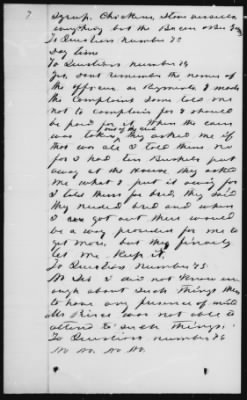 7
Syrup. Chickens, I
anything but the Bacon
To Question number 73
Day time
To Question number 74
Yes, dont remember the names of
the officers or Regiments. I made
the complaint Some told me
not to complain for I should
be paid for it. When the corn
was taking one of the men they asked me if
that was all I told them no
for I had ten Bushels put
away at the House, they asked
me what I put it away for
I told them for bred, they said
they needed bred and when
I got out there would
be a way provided for me to
get more, but they finaly
let me keep it.
To Question Number 75.
No Sir I did not know en
ough about such things then
to have any presence of mind
Mr was not able to
attend to such things.
To Question number 76
No No. No No.